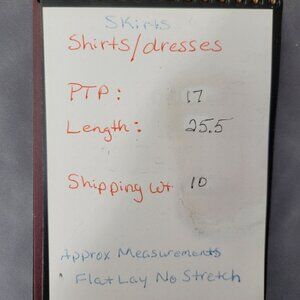 Skirts
Shirts/dresses
PTP: 17
Length: 25.5
Shipping wt 10
Approx Measurements
Flat Lay No Stretch